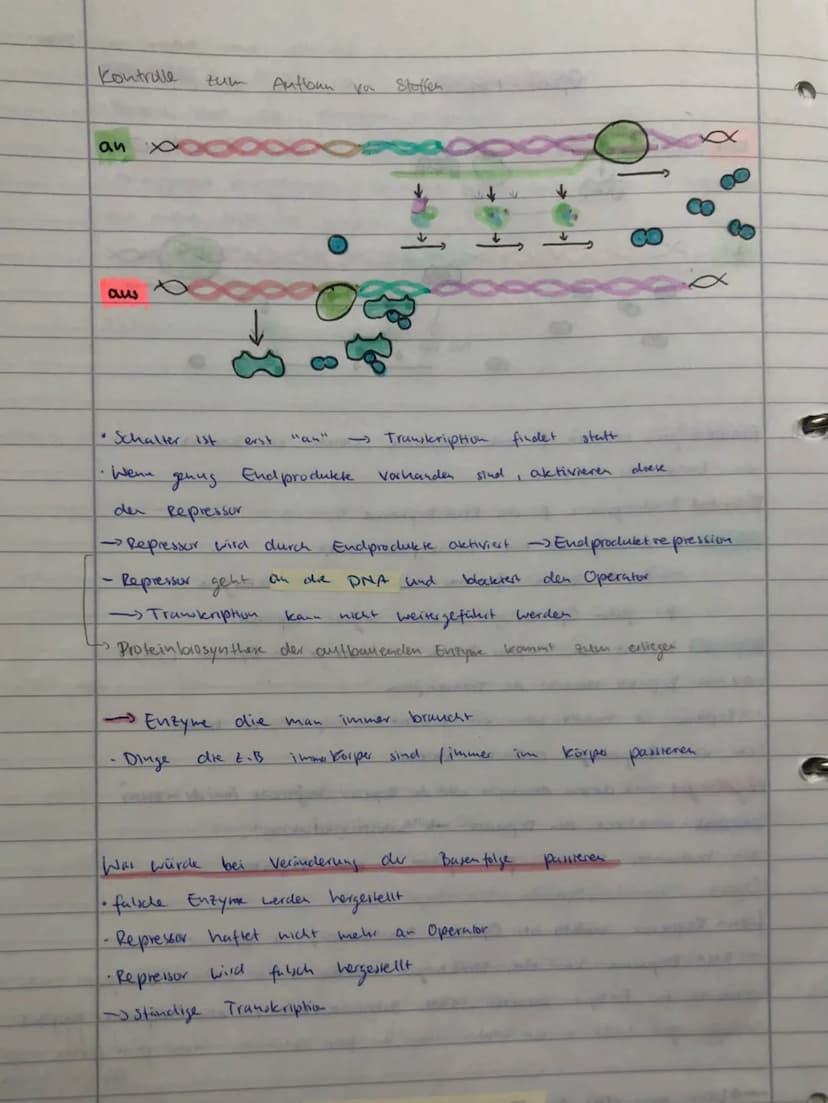 Kontrolle zum Aufbau von Stoffen
an
aus
• Schalter ist erst "an" → Transkription findet statt
· Wenn genug Endprodukte vorhanden sind, aktivieren diese
den Repressor
→ Repressor wird durch Endprodukte aktiviert → Endproduktrepression
- Repressor geht an die DNA und blockiert den Operator
→ Transkription kann nicht weitergeführt werden
→ Proteinbiosynthese der aufbauenden Enzyme kommt zum erliegen
→ Enzyme die man immer braucht
- Dinge die z.B. im Körper sind / immer im Körper passieren
Was würde bei Veränderung der Basenfolge passieren
• falsche Enzyme werden hergestellt
- Repressor haftet nicht mehr an Operator
· Repressor wird falsch hergestellt
→ ständige Transkription